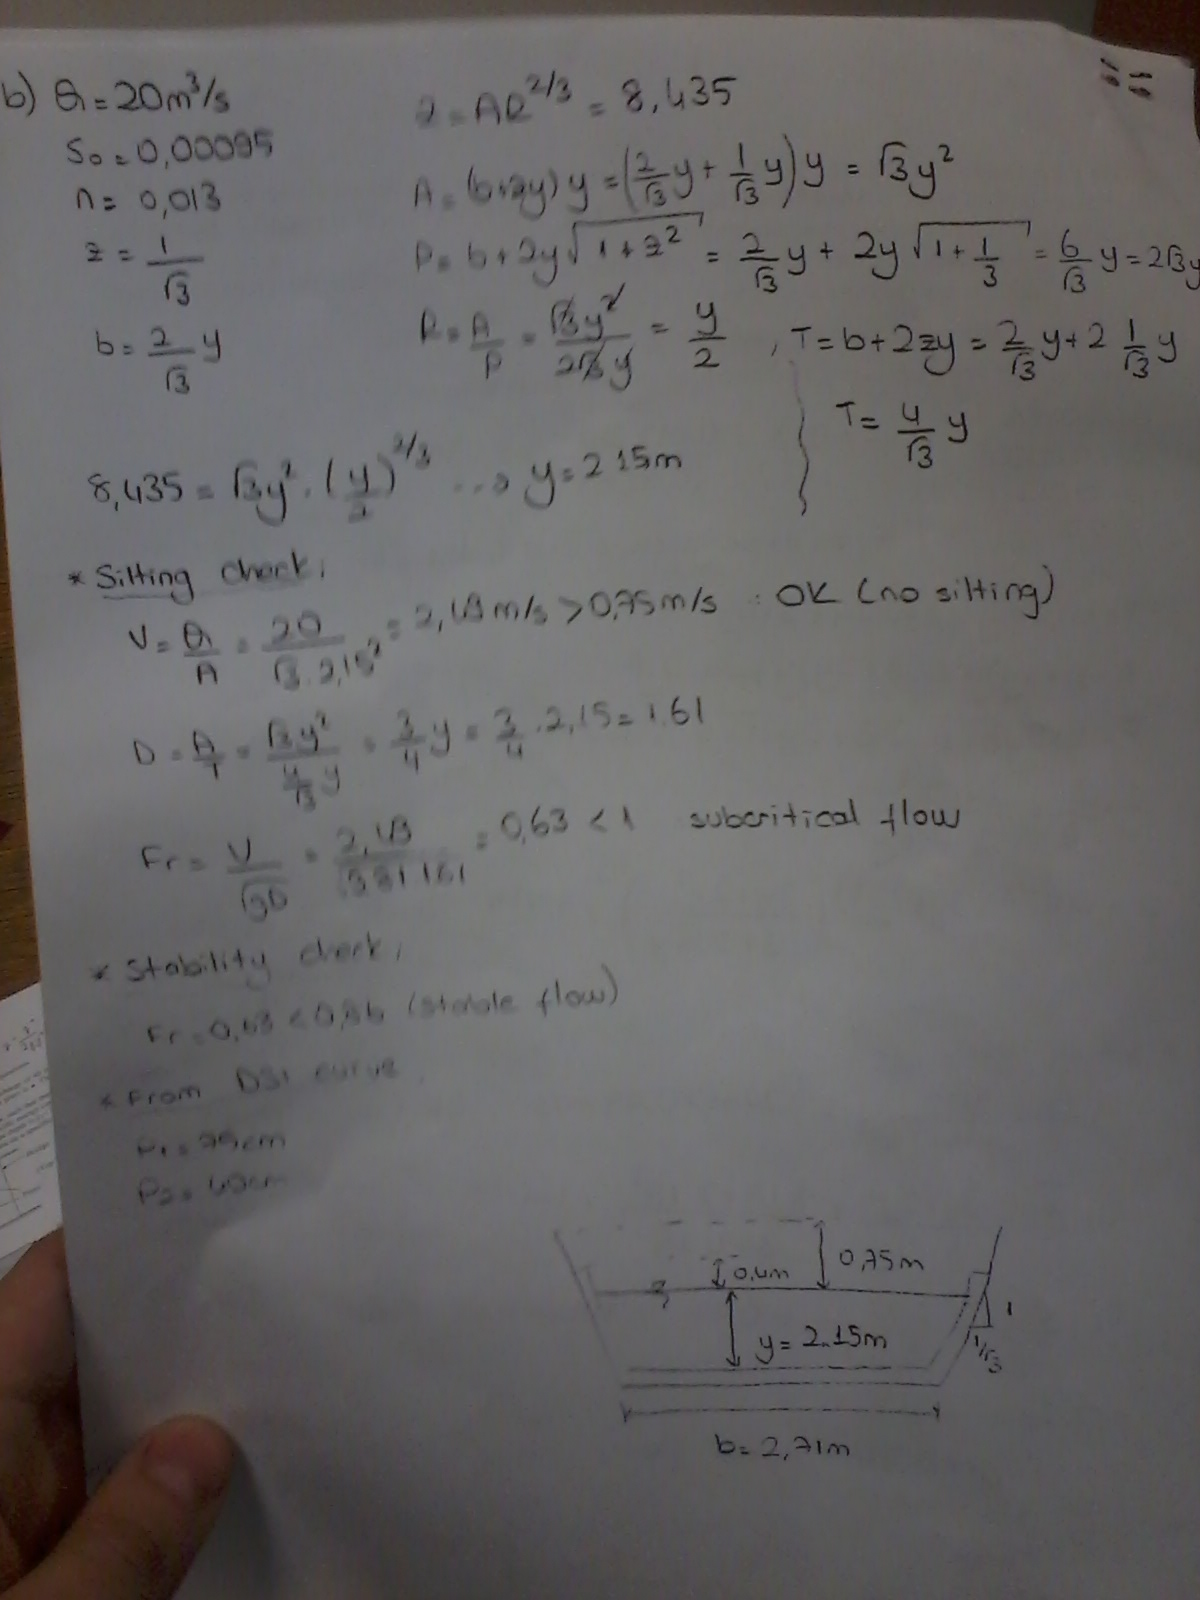 b) Q = 20m³/s
S₀ = 0,00095
n = 0,013
z = 1/√3
b = 2/√3 y
z = AR^2/3 = 8,435
A = (b+zy) y = (2/√3 y + 1/√3 y) y = √3y²
P = b + 2y√(1+z²) = 2/√3 y + 2y√(1+1/3) = 6/√3 y = 2√3y
R = A/P = √3y²/2√3y = y/2 , T = b + 2zy = 2/√3 y + 2 1/√3 y
T = 4/√3 y
8,435 = √3y² . (y/2)^2/3 ...→ y = 2.15m
* Silting check;
V = Q/A = 20/√3.2,15² = 2,49m/s > 0,75m/s : OK (no silting)
D = A/T = √3y²/(4/√3 y) = 3/4 y = 3/4 . 2,15 = 1.61
Fr = V/√gD = 2,49/√9.81 1.61 = 0,63 < 1 subcritical flow
* Stability check;
Fr = 0,63 < 0,86 (stable flow)
* From DSI curve
F₁ = 75cm
F₂ = 40cm
0,4m
0,75m
y = 2.15m
1
1/√3
b = 2,71m